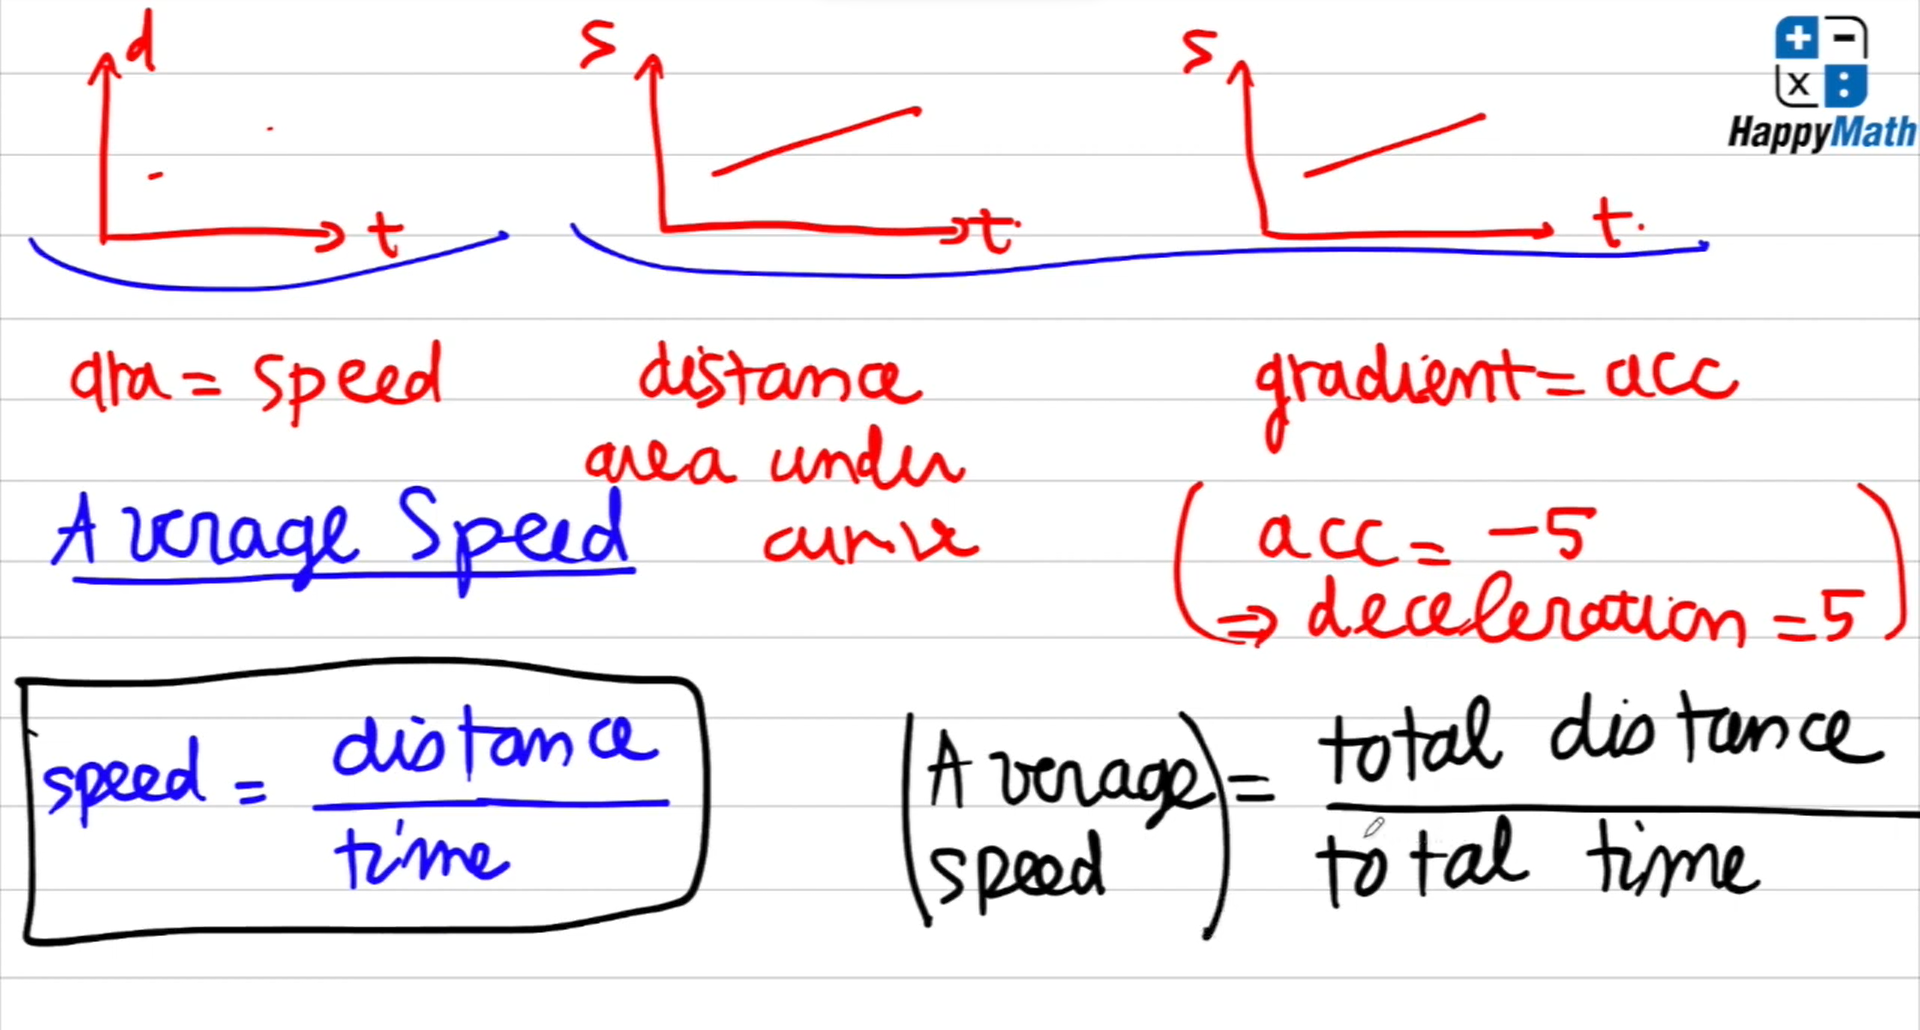 d
t
s
t
s
t.
+ -
x :
HappyMath
gra = speed
distance
area under
curve
gradient = acc
(acc = -5
⇒ deceleration = 5)
Average Speed
speed = distance
time
(Average speed) = total distance
total time